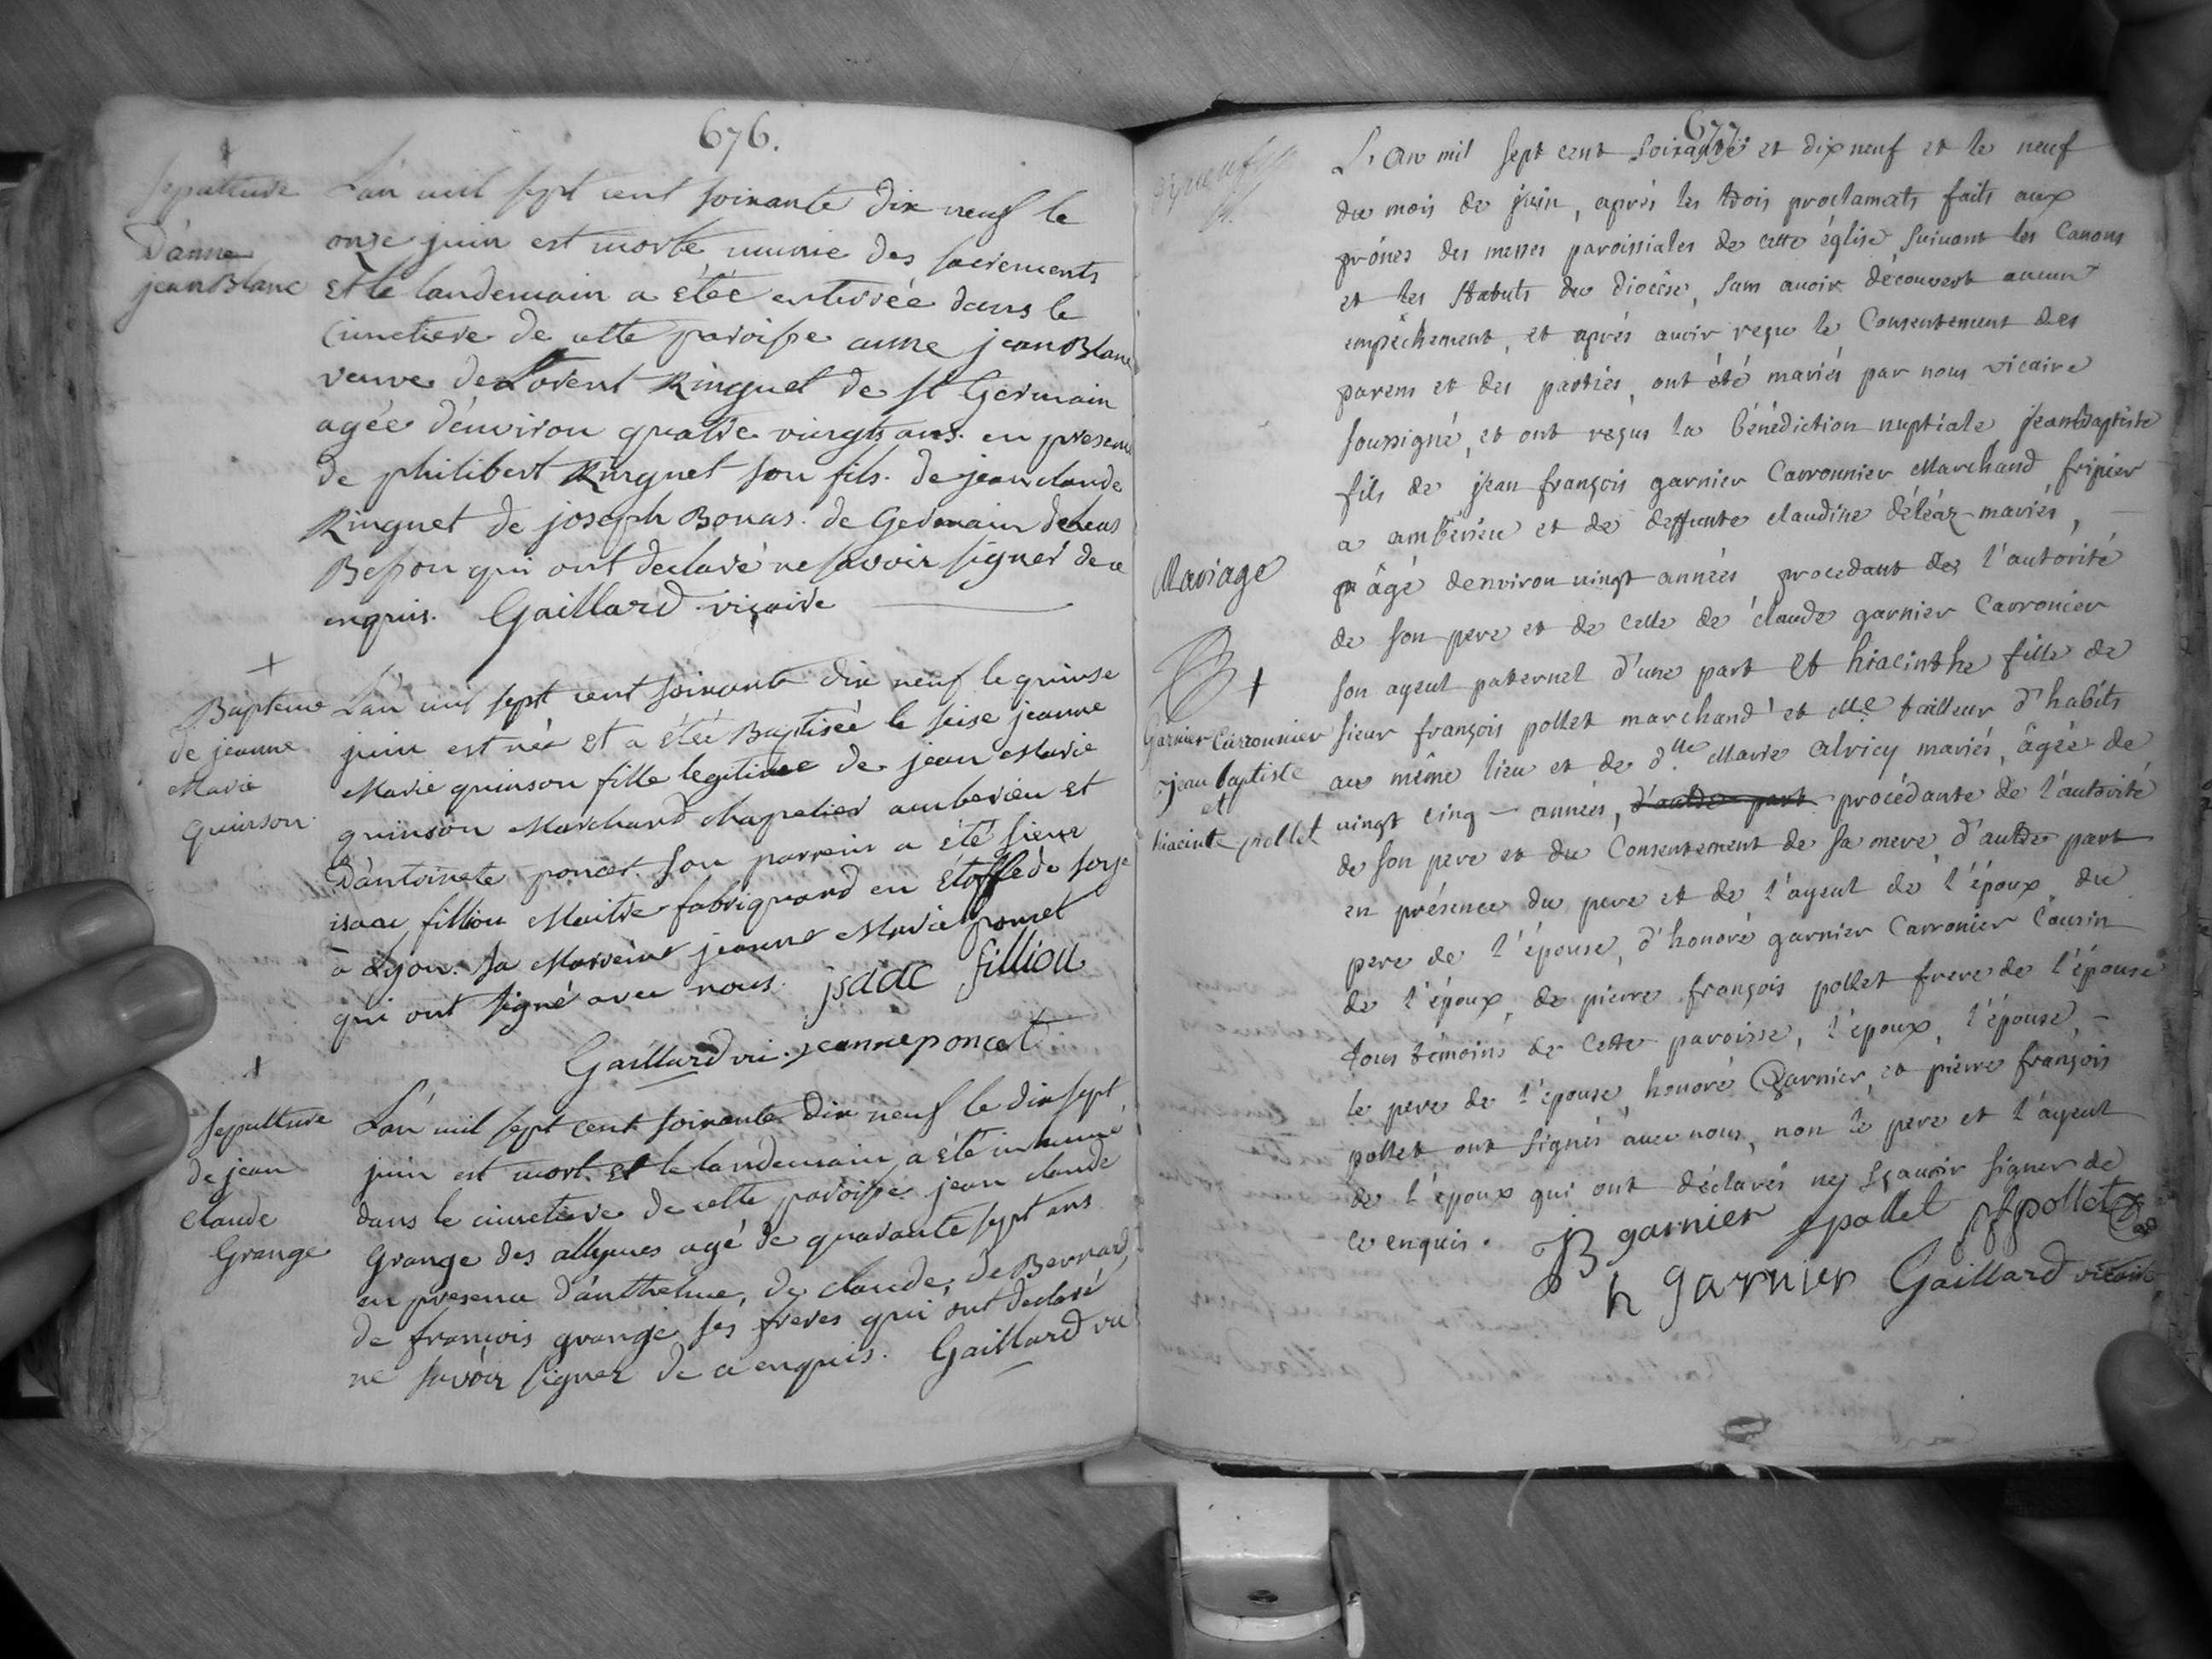 676.
Sepulture
D'anne
jean Blanc
L'an mil sept cent soixante dix neuf le
onze juin est morte munie des sacrements
et le landemain a étée enterrée dans le
cimetiere de cette paroisse anne jean Blanc
veuve de Lorent Ringuet de st Germain
agée d'environ quatre vingts ans. en presence
de philibert Ringuet son fils. de jean claude
Ringuet de joseph Bonas. de Germain
Besson qui ont declaré ne savoir signer de ce
enquis. Gaillard vicaire
Bapteme
de jeanne
Marie
quinson
L'an mil sept cent soixante dix neuf le quinse
juin est née et a étée Baptisée le seise jeanne
Marie quinson fille legitime de jean Marie
quinson Marchand chapelier amberieu et
D'antoinete poncet. son parrein a été sieur
isaac filliou Maitre fabriquand en étoffe de soye
à Lyon. sa Marreine jeanne Marie poncet
qui ont signé avec nous. jsaac filliou
Gaillard vic. jeanne poncet
Sepulture
de jean
claude
Grange
L'an mil sept cent soixante dix neuf le dix sept
juin est mort et le landemain a été inhumé
dans le cimetiere de cette paroisse jean claude
Grange des allymes agé de quarante sept ans
en presence d'anthelme, de claude, de Bernard,
de francois grange ses freres qui ont declaré
ne savoir signer de ce enquis. Gaillard vic
677
L'an mil sept cent soixante et dix neuf et le neuf
du mois de juin, aprés les trois proclamats faits aux
prônes des messes paroissiales de cette église suivant les Canons
et les statuts du diocèse, sans avoir découvert aucun
empêchement, et aprés avoir reçu le Consentement des
parens et des parties, ont été mariés par nous vicaire
soussigné, et ont reçus la bénédiction nuptiale, jean Baptiste
fils de jean françois garnier Carronnier Marchand fripier
a ambérieu et de deffunte claudine déléaz mariés,
Mariage
âgé denviron vingt années, procedant de l'autorité
de son pere et de celle de claude garnier Carronier
son ayeul paternel d'une part et hiacinthe fille de
Garnier Carronnier
jean baptiste
et
hiacinte pollet
sieur françois pollet marchand et Me tailleur d'habits
au même lieu et de dlle Marie alricy mariés, âgée de
vingt cinq années, d'autre part procédante de l'autorité
de son pere et du Consentement de sa mere d'autre part
en présence du pere et de l'ayeul de l'époux, du
pere de l'épouse, d'honoré garnier Carronier Cousin
de l'époux, de pierre françois pollet frere de l'épouse
tous témoins de cette paroisse, l'époux, l'épouse,
le pere de l'épouse, honoré Garnier, et pierre françois
pollet ont signés avec nous, non le pere et l'ayeul
de l'époux qui ont déclarés ne sçavoir signer de
ce enquis. JB garnier fpollet pfpollet
h garnier Gaillard vicaire